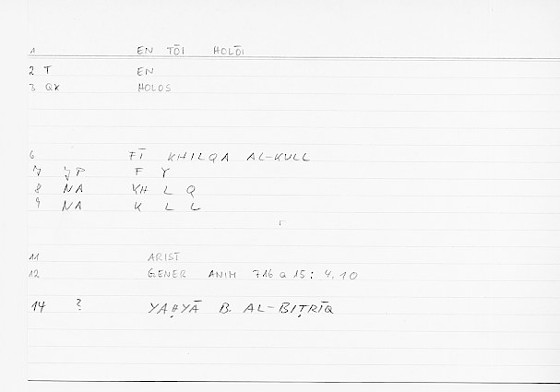 1 EN TŌI HOLŌI
2 T EN
3 QX HOLOS
6 FĪ KHILQA AL-KULL
7 JP F Y
8 NA KH L Q
9 NA K L L
11 ARIST
12 GENER ANIM 716 a 15 : 4.10
14 ? YAḤYĀ B. AL-BIṬRĪQ